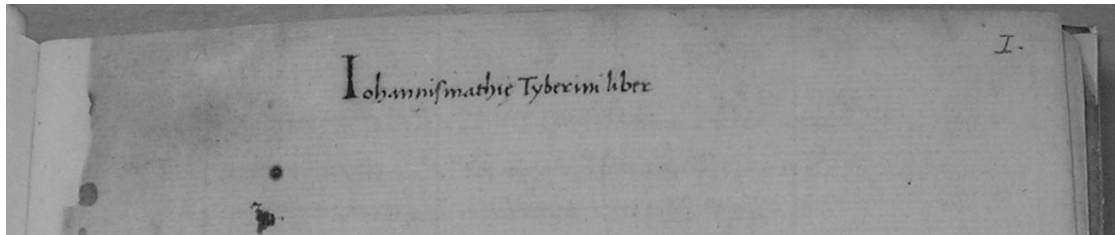 I.
Iohannismathię Tyberini liber